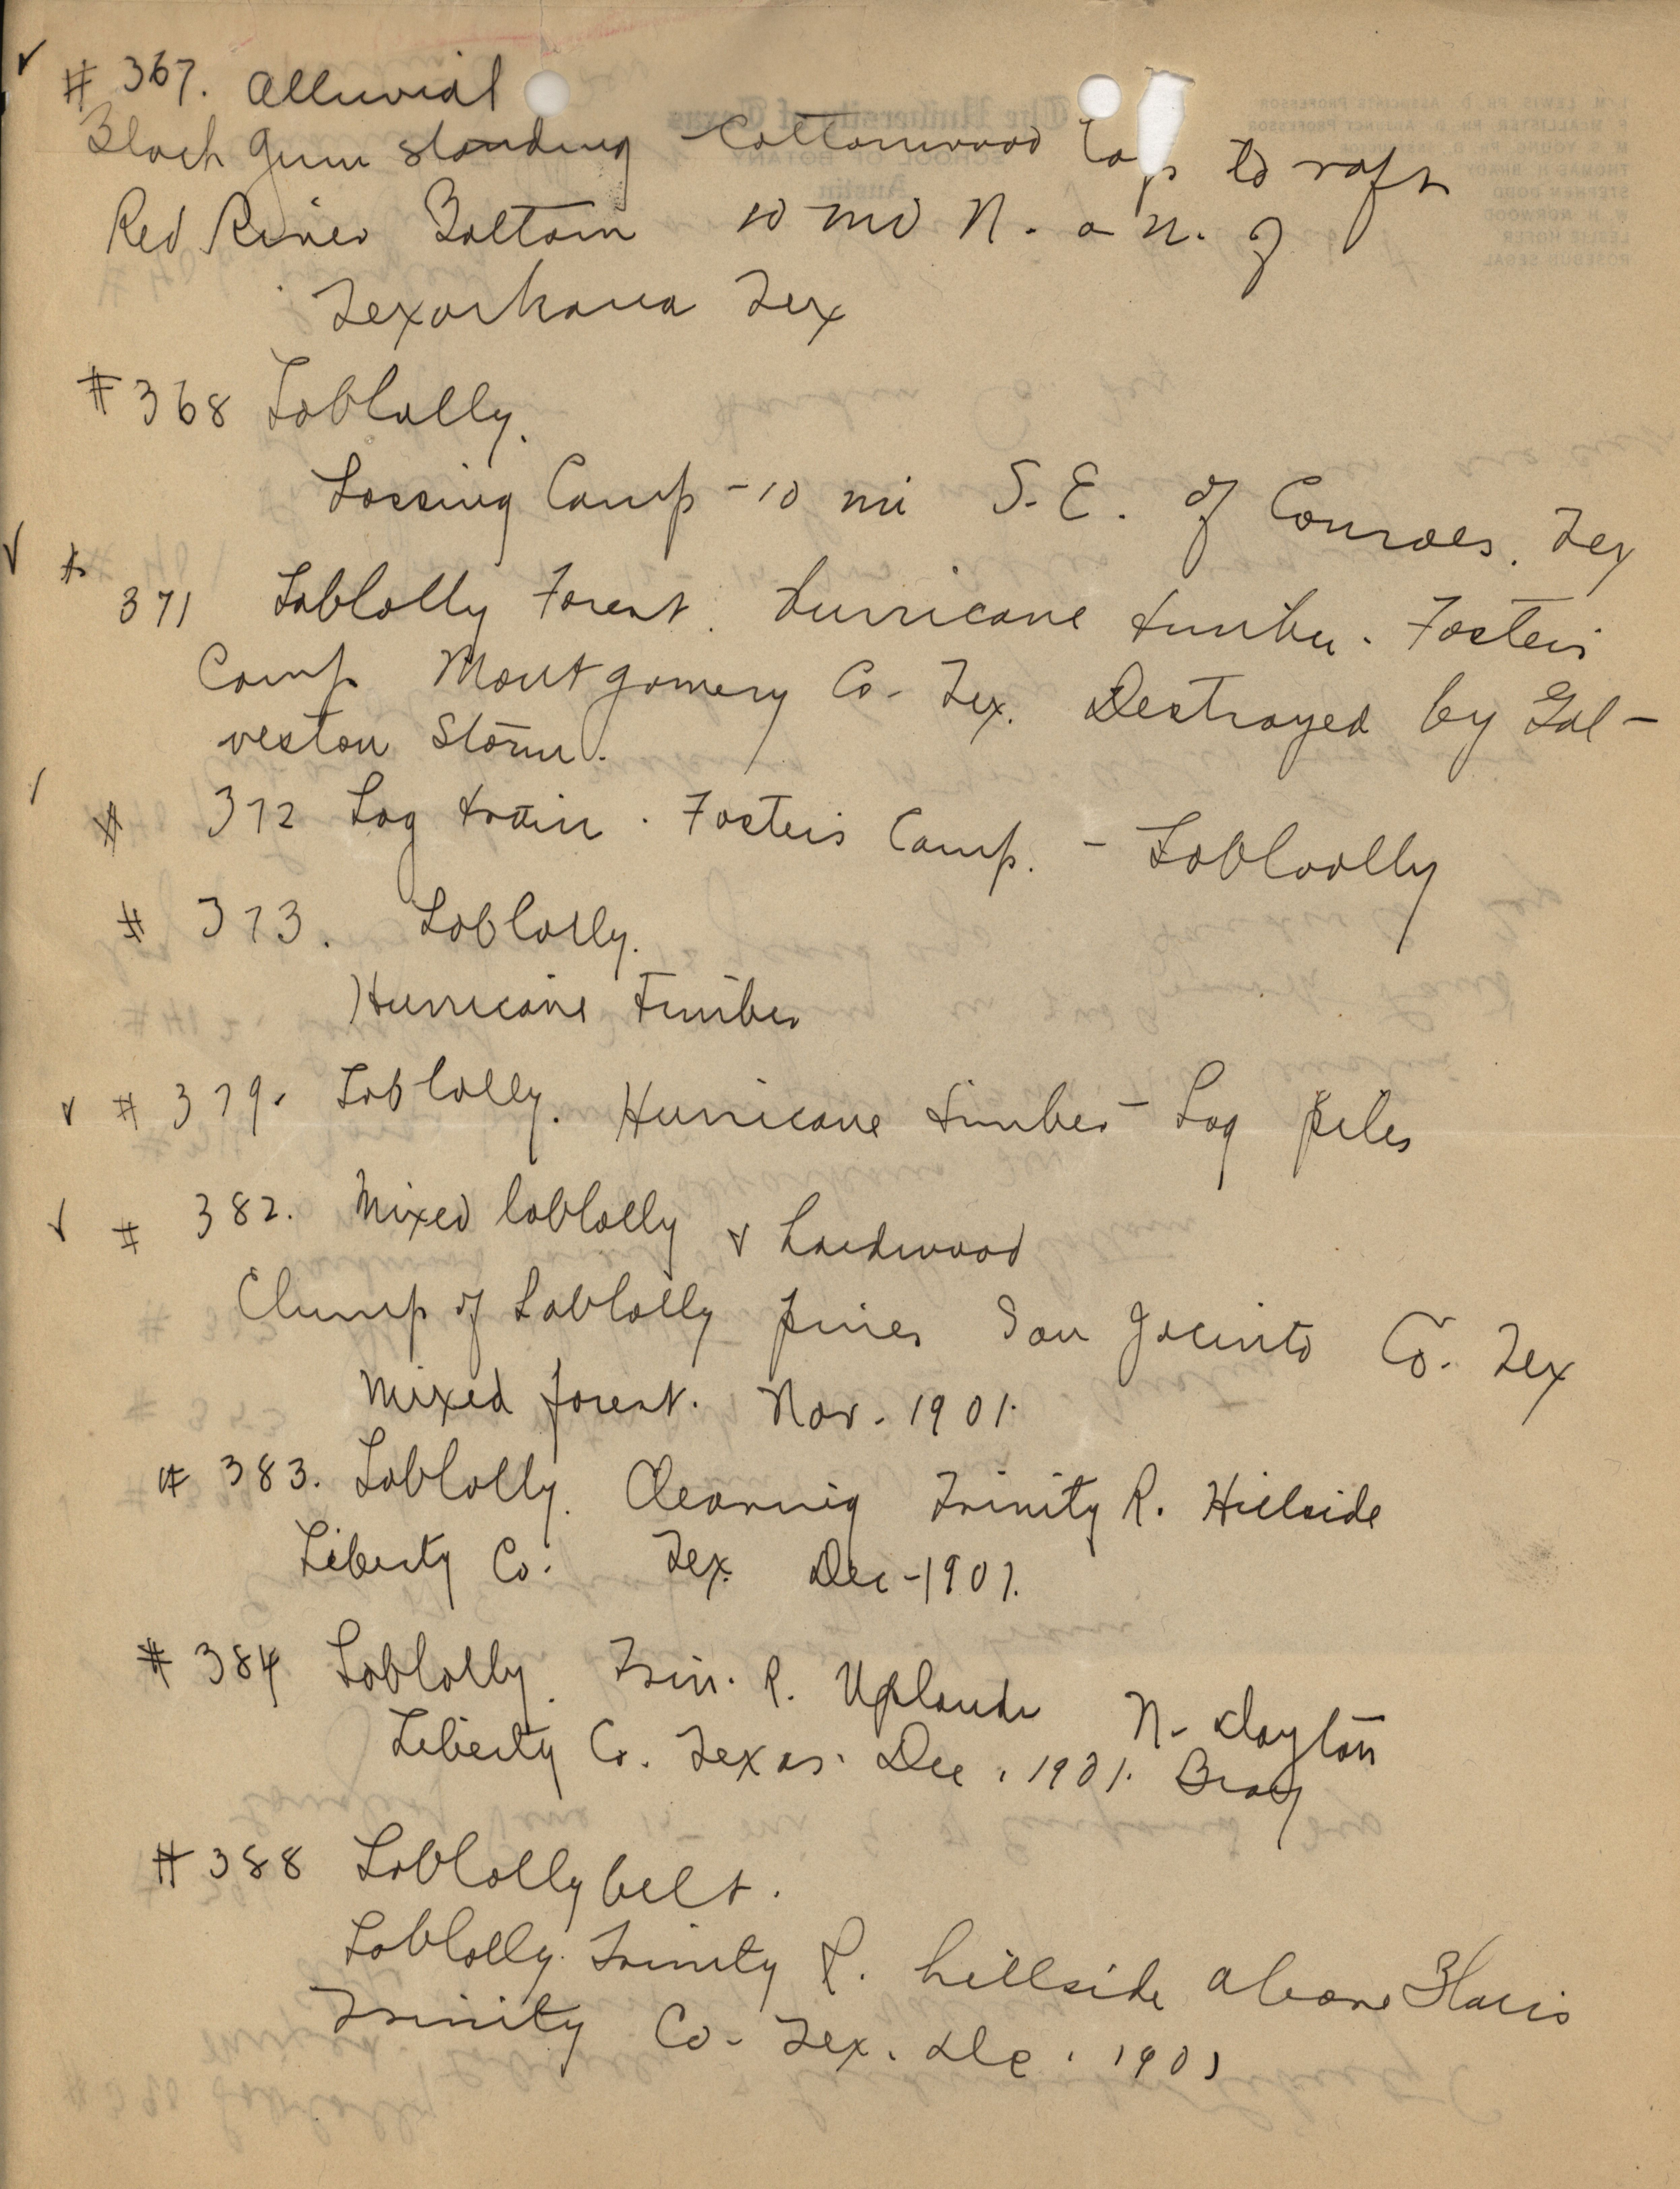 ✓ # 367. Alluvial
Black gum standing Cottonwood logs to raft
Red River Bottom 10 mi N. a N. of
Texarkana Tex
# 368 Loblolly.
Logging Camp - 10 mi S.E. of Conroes. Tex
✓ #
371 Loblolly Forest. Hurricane timber. Fosters
Camp Montgomery Co. Tex. Destroyed by Gal-
veston Storm.
# 372 Log train. Fosters Camp. - Lobloolly
# 373. Loblolly.
Hurricane Timber
✓ # 379. Loblolly. Hurricane timber - Log piles
✓ # 382. Mixed loblolly & Hardwood
Clump of Loblolly pines San Jacinto Co. Tex
Mixed forest. Nov. 1901.
# 383. Loblolly. Clearing Trinity R. Hillside
Liberty Co. Tex. Dec - 1901.
# 384 Loblolly. Trin. R. Uplands N. Dayton
Liberty Co. Texas. Dec. 1901. Bray
# 388 Loblolly belt.
Loblolly. Trinity R. hillside above
Trinity Co. Tex. Dec. 1901
The University of Texas
SCHOOL OF BOTANY
Austin
I. M. LEWIS, PH. D., ASSOCIATE PROFESSOR
F. McALLISTER, PH. D., ADJUNCT PROFESSOR
M. S. YOUNG, PH. D.
THOMAS H. BRADY
STEPHEN DODD
W. H. NORWOOD
LESLIE HOFER
ROSEBUD SEGAL